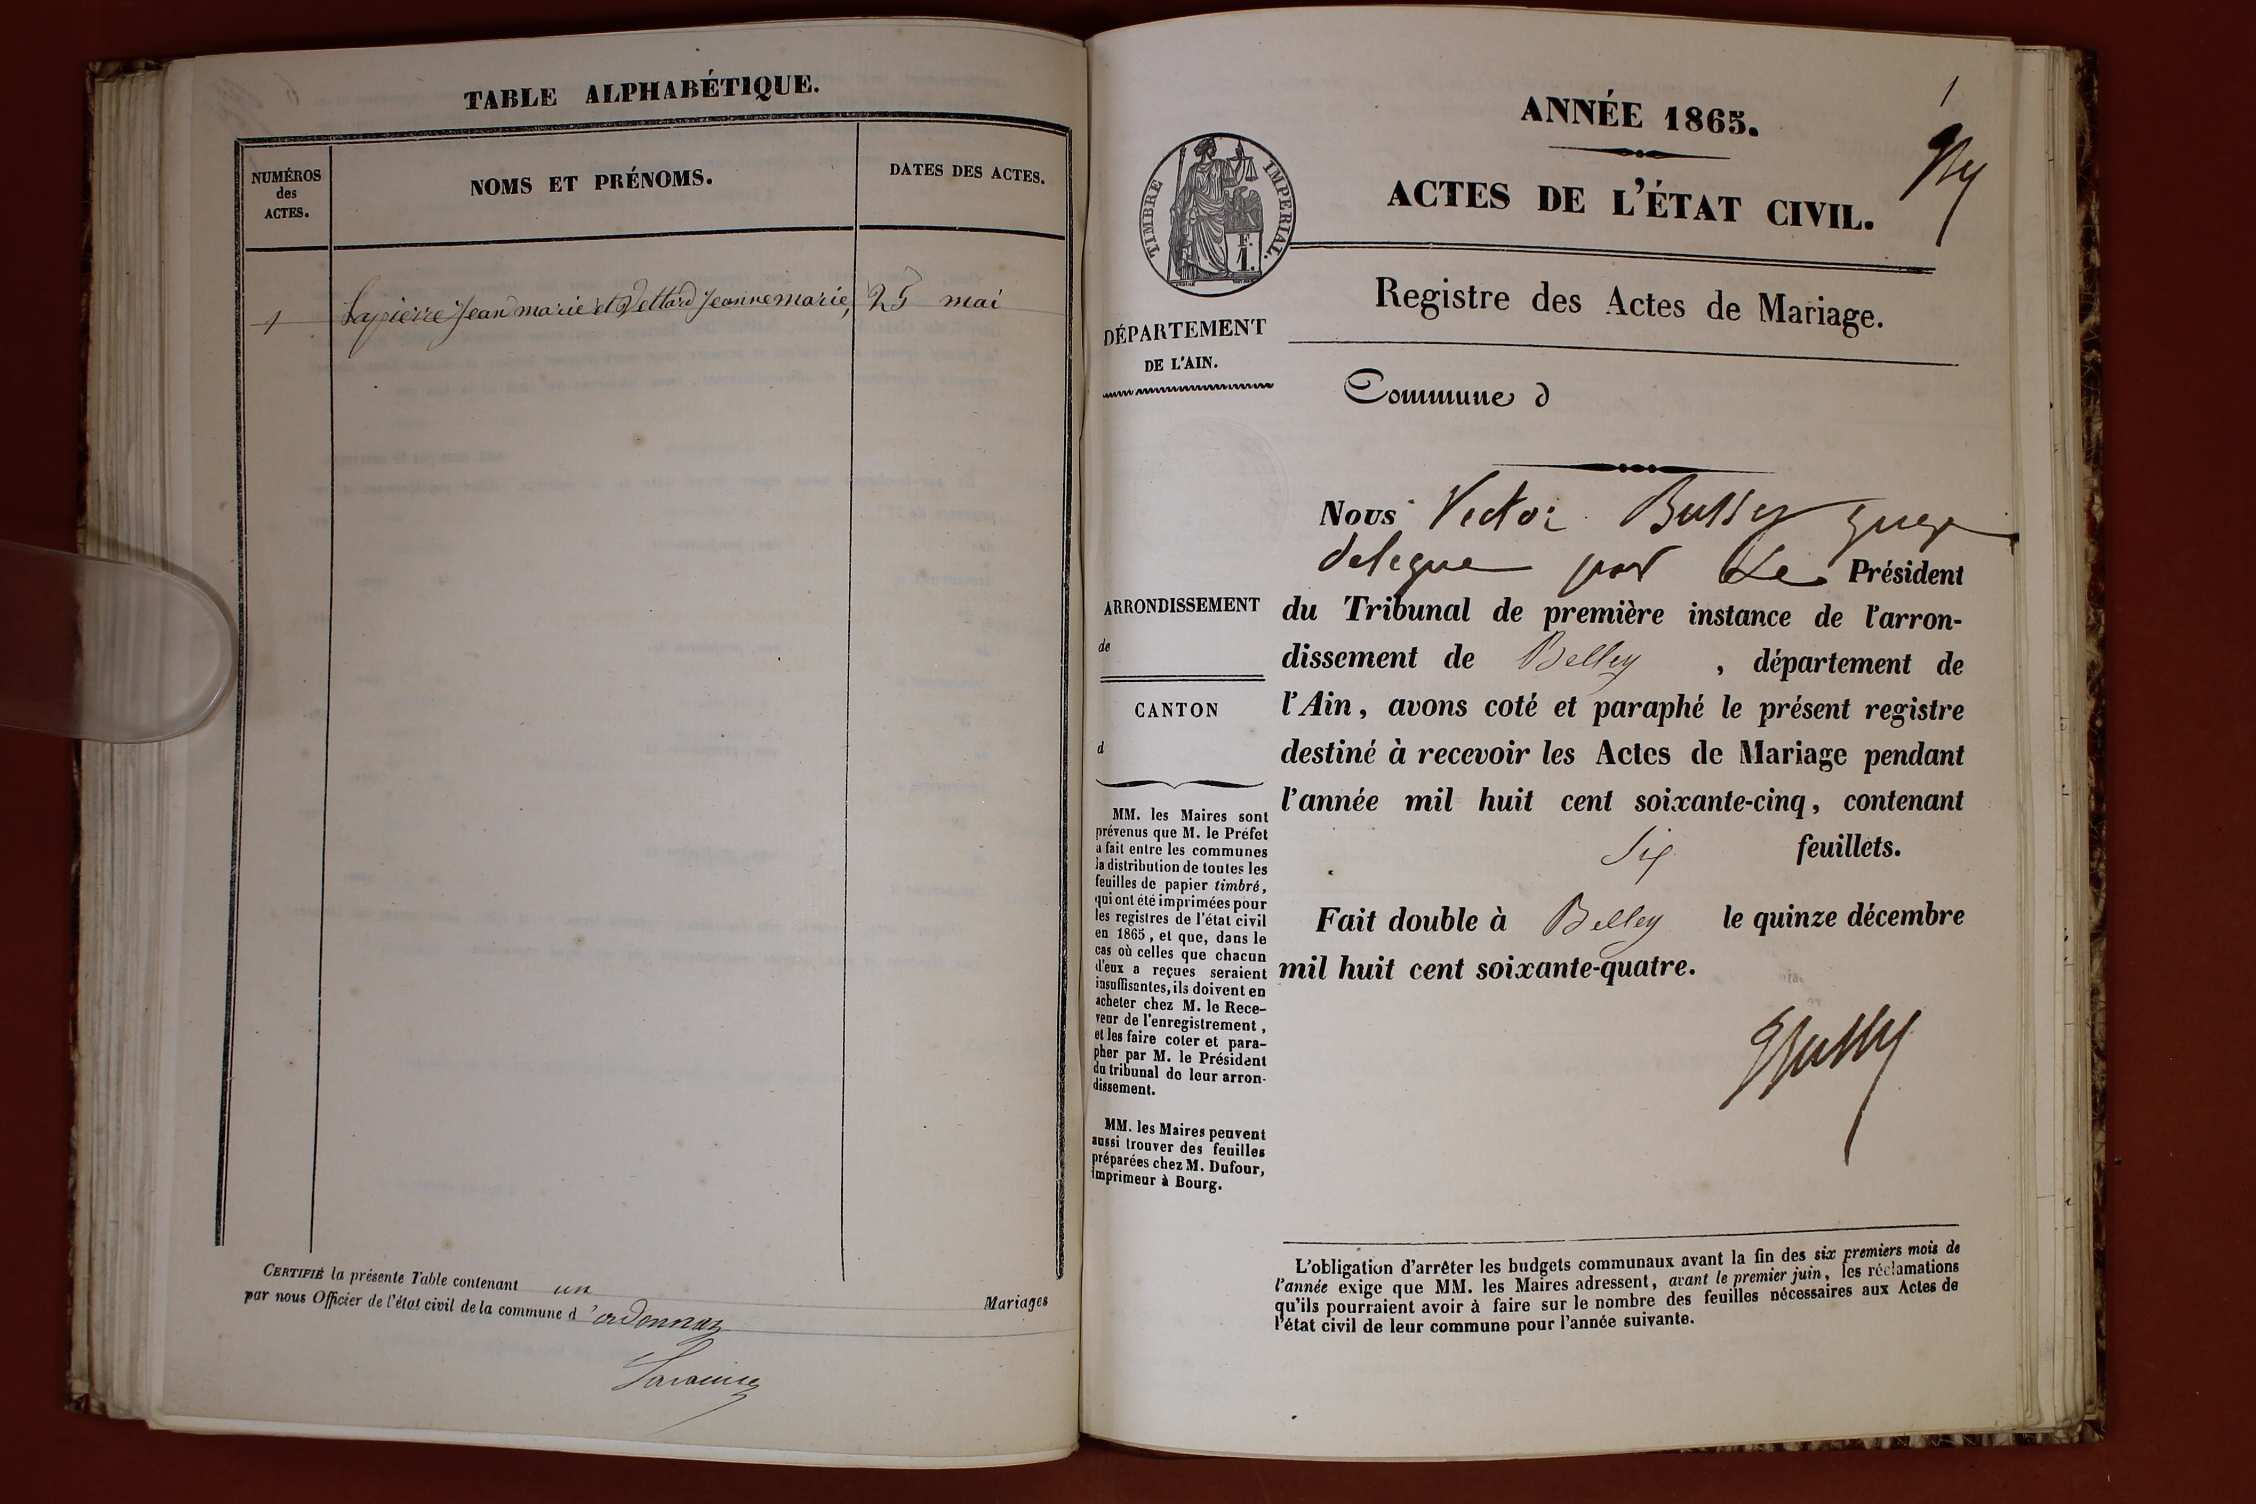 TABLE ALPHABÉTIQUE.
NUMÉROS
des
ACTES.
NOMS ET PRÉNOMS.
DATES DES ACTES.
1 Lapierre Jean marie et Vettard Jeanne marie, 25 mai
CERTIFIÉ la présente Table contenant un Mariages
par nous Officier de l'état civil de la commune d'ordonnaz
1
ANNÉE 1865.
ACTES DE L'ÉTAT CIVIL.
TIMBRE IMPÉRIAL.
F.
1.
Registre des Actes de Mariage.
DÉPARTEMENT
DE L'AIN.
Commune d
ARRONDISSEMENT
de
CANTON
d
MM. les Maires sont
prévenus que M. le Préfet
a fait entre les communes
la distribution de toutes les
feuilles de papier timbré,
qui ont été imprimées pour
les registres de l'état civil
en 1865, et que, dans le
cas où celles que chacun
d'eux a reçues seraient
insuffisantes, ils doivent en
acheter chez M. le Rece-
veur de l'enregistrement,
et les faire coter et para-
pher par M. le Président
du tribunal de leur arron-
dissement.
MM. les Maires peuvent
aussi trouver des feuilles
préparées chez M. Dufour,
imprimeur à Bourg.
Nous Victor Bussy juge
delegue par Le Président
du Tribunal de première instance de l'arron-
dissement de Belley, département de
l'Ain, avons coté et paraphé le présent registre
destiné à recevoir les Actes de Mariage pendant
l'année mil huit cent soixante-cinq, contenant
Six feuillets.
Fait double à Belley le quinze décembre
mil huit cent soixante-quatre.
Bussy
L'obligation d'arrêter les budgets communaux avant la fin des six premiers mois de
l'année exige que MM. les Maires adressent, avant le premier juin, les réclamations
qu'ils pourraient avoir à faire sur le nombre des feuilles nécessaires aux Actes de
l'état civil de leur commune pour l'année suivante.